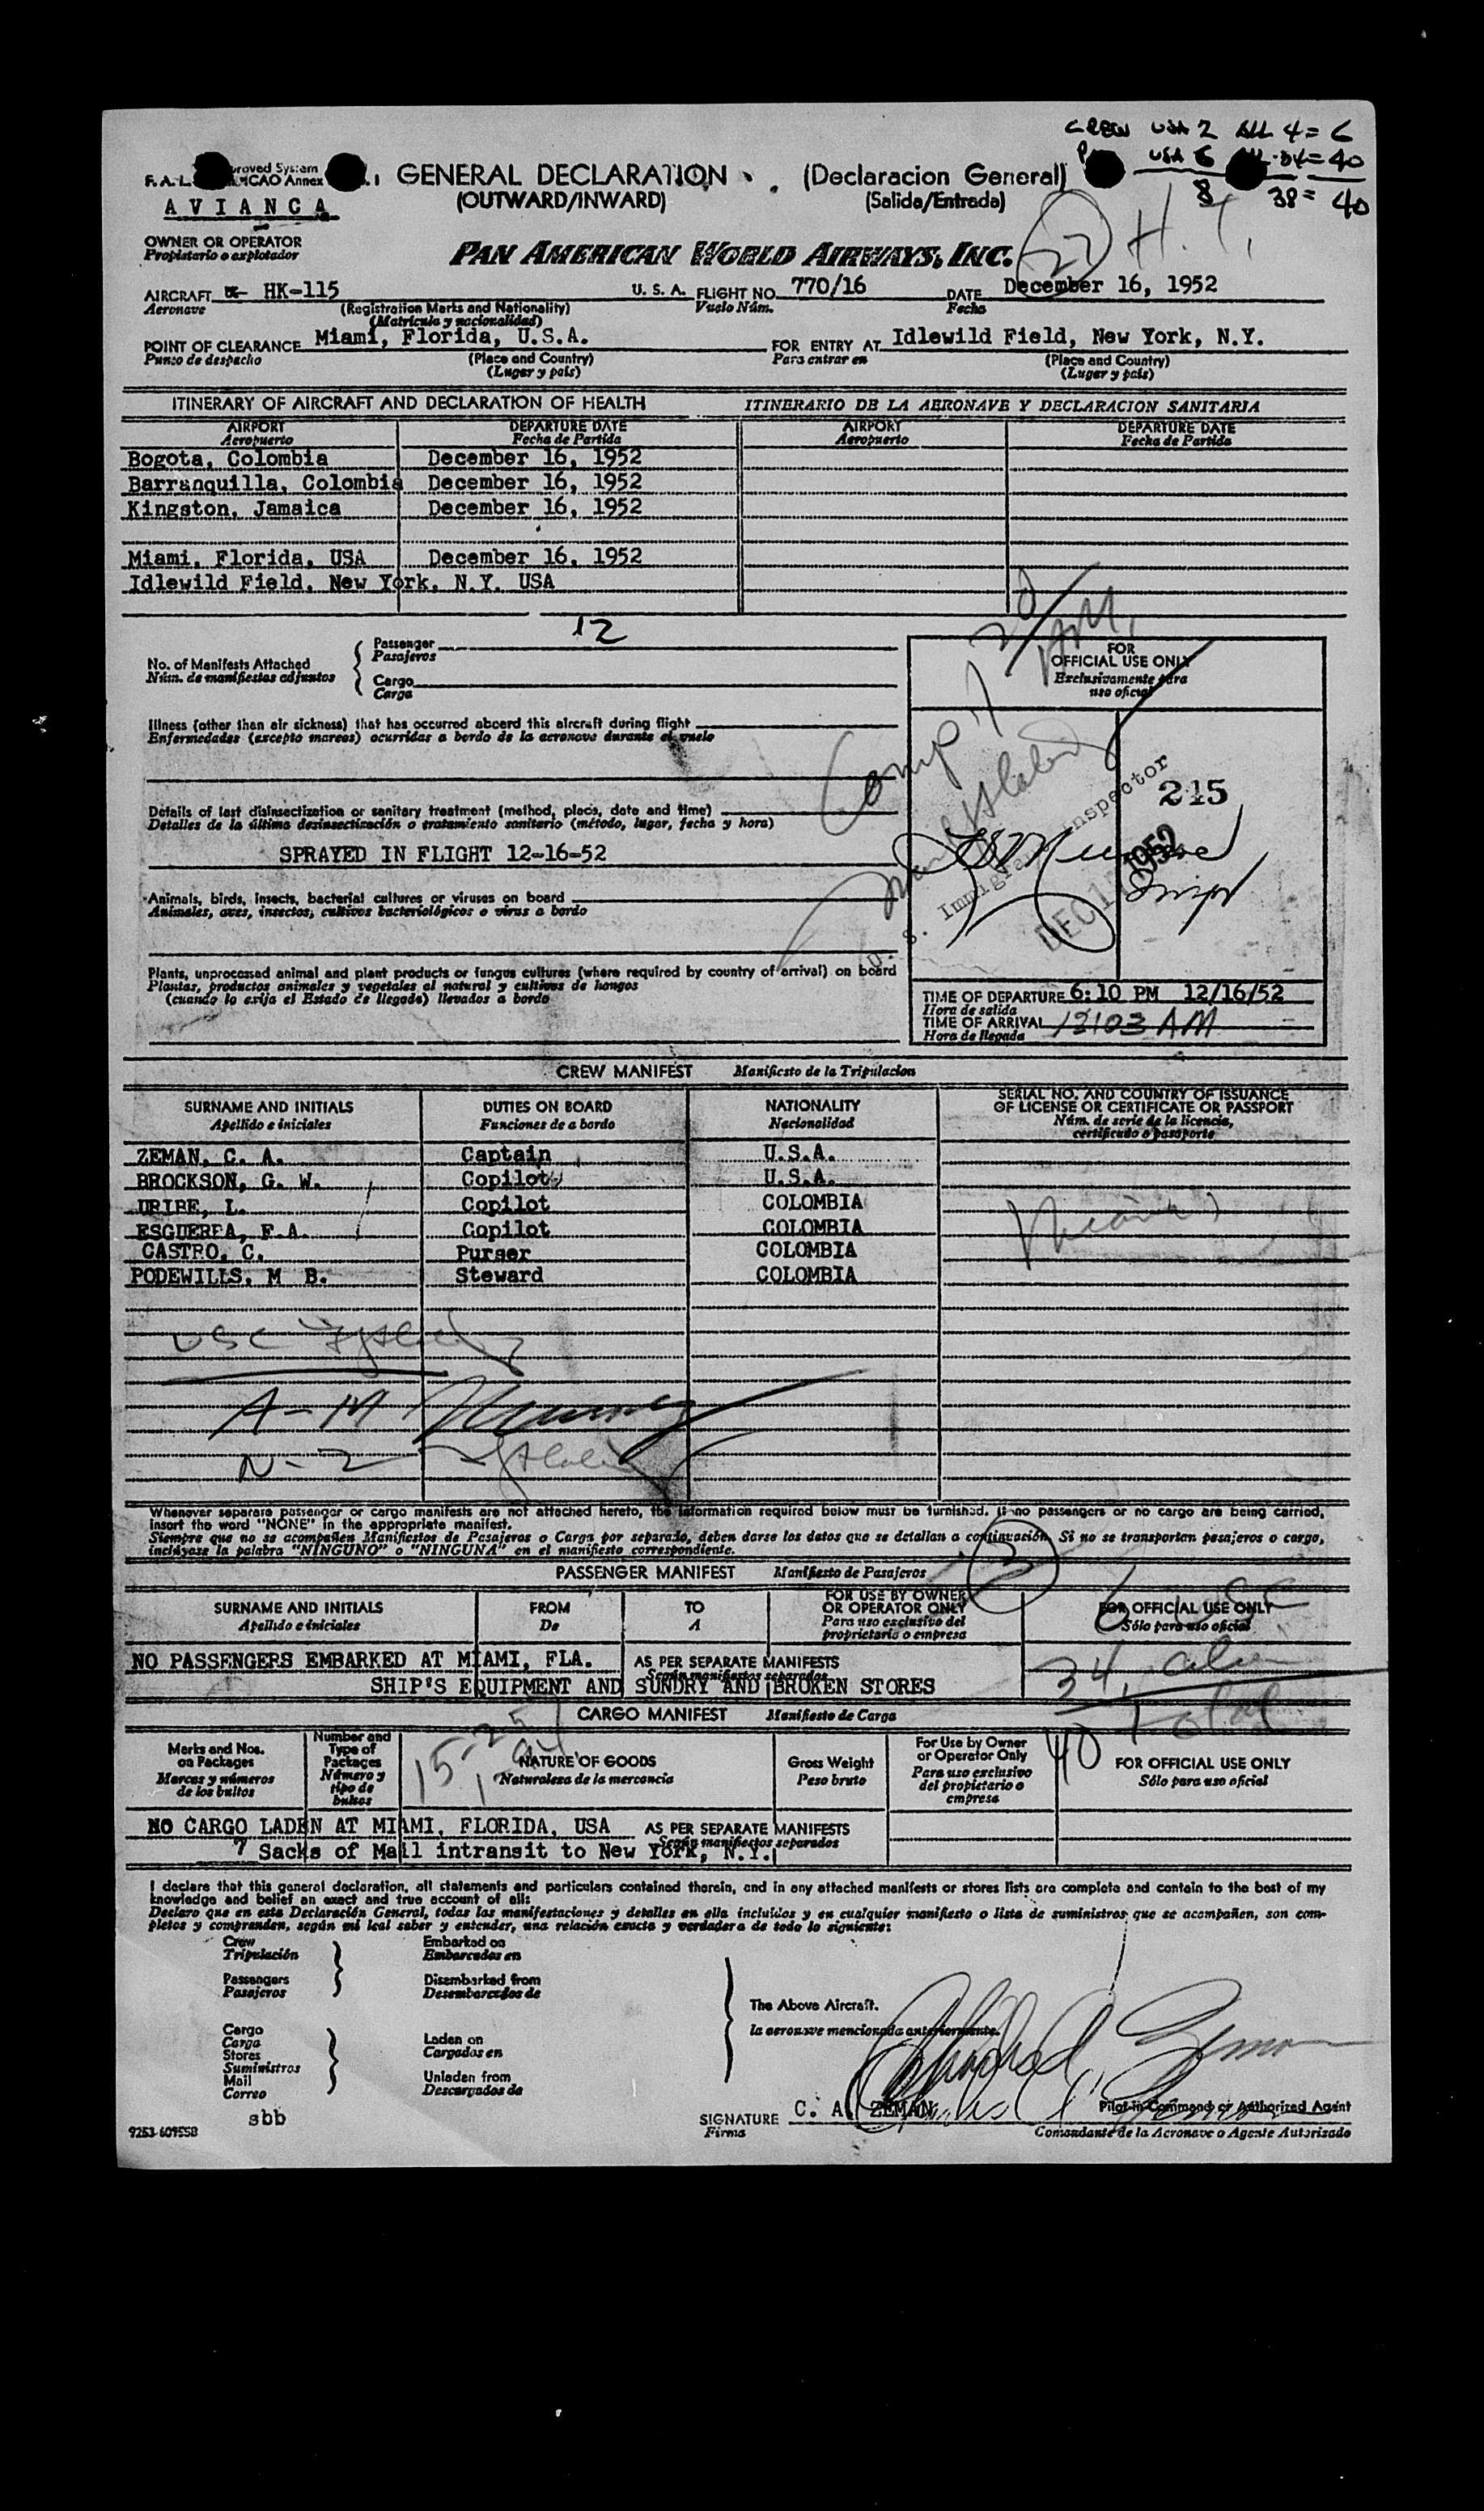 CREW USA 2 ALL 4 = 6
USA 6 34 = 40
8 38 = 40
roved System
F.A.L. ICAO Annex
GENERAL DECLARATION (Declaracion General)
(OUTWARD/INWARD) (Salida/Entrada)
AVIANCA
H.
OWNER OR OPERATOR
Propietario o explotador
PAN AMERICAN WORLD AIRWAYS, INC.
AIRCRAFT HK-115 U. S. A. FLIGHT NO. 770/16 DATE December 16, 1952
Aeronave (Registration Marks and Nationality) Vuelo Núm. Fecha
(Matricula y nacionalidad)
POINT OF CLEARANCE Miami, Florida, U.S.A. FOR ENTRY AT Idlewild Field, New York, N.Y.
Punto de despacho (Place and Country) Para entrar en (Place and Country)
(Lugar y pais) (Lugar y pais)
ITINERARY OF AIRCRAFT AND DECLARATION OF HEALTH ITINERARIO DE LA AERONAVE Y DECLARACION SANITARIA
AIRPORT DEPARTURE DATE AIRPORT DEPARTURE DATE
Aeropuerto Fecha de Partida Aeropuerto Fecha de Partida
Bogota, Colombia December 16, 1952
Barranquilla, Colombia December 16, 1952
Kingston, Jamaica December 16, 1952
Miami, Florida, USA December 16, 1952
Idlewild Field, New York, N.Y. USA
12
No. of Manifests Attached Passenger
Núm. de manifiestos adjuntos Pasajeros
Cargo
Carga
FOR
OFFICIAL USE ONLY
Exclusivamente para
uso oficial
Illness (other than air sickness) that has occurred aboard this aircraft during flight
Enfermedades (excepto mareos) ocurridas a bordo de la aeronave durante el vuelo
Details of last disinsectization or sanitary treatment (method, place, date and time)
Detalles de la última desinsectización o tratamiento sanitario (método, lugar, fecha y hora)
SPRAYED IN FLIGHT 12-16-52
245
U. S. Immigrant Inspector
DEC 1952
Animals, birds, insects, bacterial cultures or viruses on board
Animales, aves, insectos, cultivos bacteriológicos o virus a bordo
Plants, unprocessed animal and plant products or fungus cultures (where required by country of arrival) on board
Plantas, productos animales y vegetales al natural y cultivos de hongos
(cuando lo exija el Estado de llegada) llevados a bordo
TIME OF DEPARTURE 6:10 PM 12/16/52
Hora de salida
TIME OF ARRIVAL 12:03 AM
Hora de llegada
CREW MANIFEST Manifiesto de la Tripulacion
SURNAME AND INITIALS DUTIES ON BOARD NATIONALITY SERIAL NO. AND COUNTRY OF ISSUANCE
OF LICENSE OR CERTIFICATE OR PASSPORT
Apellido e iniciales Funciones de a bordo Nacionalidad Núm. de serie de la licencia,
certificado o pasaporte
ZEMAN, C. A. Captain U.S.A.
BROCKSON, G. W. Copilot U.S.A.
URIBE, L. Copilot COLOMBIA
ESGUERRA, F.A. Copilot COLOMBIA
CASTRO, C. Purser COLOMBIA
PODEWILLS, M B. Steward COLOMBIA
USC
A-M
N-2
Whenever separate passenger or cargo manifests are not attached hereto, the information required below must be furnished. If no passengers or no cargo are being carried,
insert the word "NONE" in the appropriate manifest.
Siempre que no se acompañen Manifiestos de Pasajeros o Carga por separado, deben darse los datos que se detallan a continuación. Si no se transportan pasajeros o cargo,
inclúyase la palabra "NINGUNO" o "NINGUNA" en el manifiesto correspondiente.
3
PASSENGER MANIFEST Manifiesto de Pasajeros
SURNAME AND INITIALS FROM TO FOR USE BY OWNER
OR OPERATOR ONLY FOR OFFICIAL USE ONLY
Apellido e iniciales De A Para uso exclusivo del
propietario o empresa Sólo para uso oficial
6 USC
NO PASSENGERS EMBARKED AT MIAMI, FLA. AS PER SEPARATE MANIFESTS
Según manifiestos separados
34 alien
SHIP'S EQUIPMENT AND SUNDRY AND BROKEN STORES
40 Total
CARGO MANIFEST Manifiesto de Carga
Marks and Nos.
on Packages
Marcas y números
de los bultos
Number and
Type of
Packages
Número y
tipo de
bultos
NATURE OF GOODS
Naturaleza de la mercancia
Gross Weight
Peso bruto
For Use by Owner
or Operator Only
Para uso exclusivo
del propietario o
empresa
FOR OFFICIAL USE ONLY
Sólo para uso oficial
NO CARGO LADEN AT MIAMI, FLORIDA, USA AS PER SEPARATE MANIFESTS
Según manifiestos separados
7 Sacks of Mail intransit to New York, N.Y.
I declare that this general declaration, all statements and particulars contained therein, and in any attached manifests or stores lists are complete and contain to the best of my
knowledge and belief an exact and true account of all:
Declaro que en esta Declaración General, todas las manifestaciones y detalles en ella incluidos y en cualquier manifiesto o lista de suministros que se acompañen, son com-
pletos y comprenden, según mi leal saber y entender, una relación exacta y verdadera de todo lo siguiente:
Crew Embarked on
Tripulación Embarcados en
Passengers Disembarked from
Pasajeros Desembarcados de
The Above Aircraft.
la aeronave mencionada anteriormente.
Cargo Laden on
Carga Cargados en
Stores
Suministros
Mail Unladen from
Correo Descargados de
sbb
SIGNATURE C. A. ZEMAN Pilot-in-Command or Authorized Agent
Firma Comandante de la Aeronave o Agente Autorizado
9253-609558